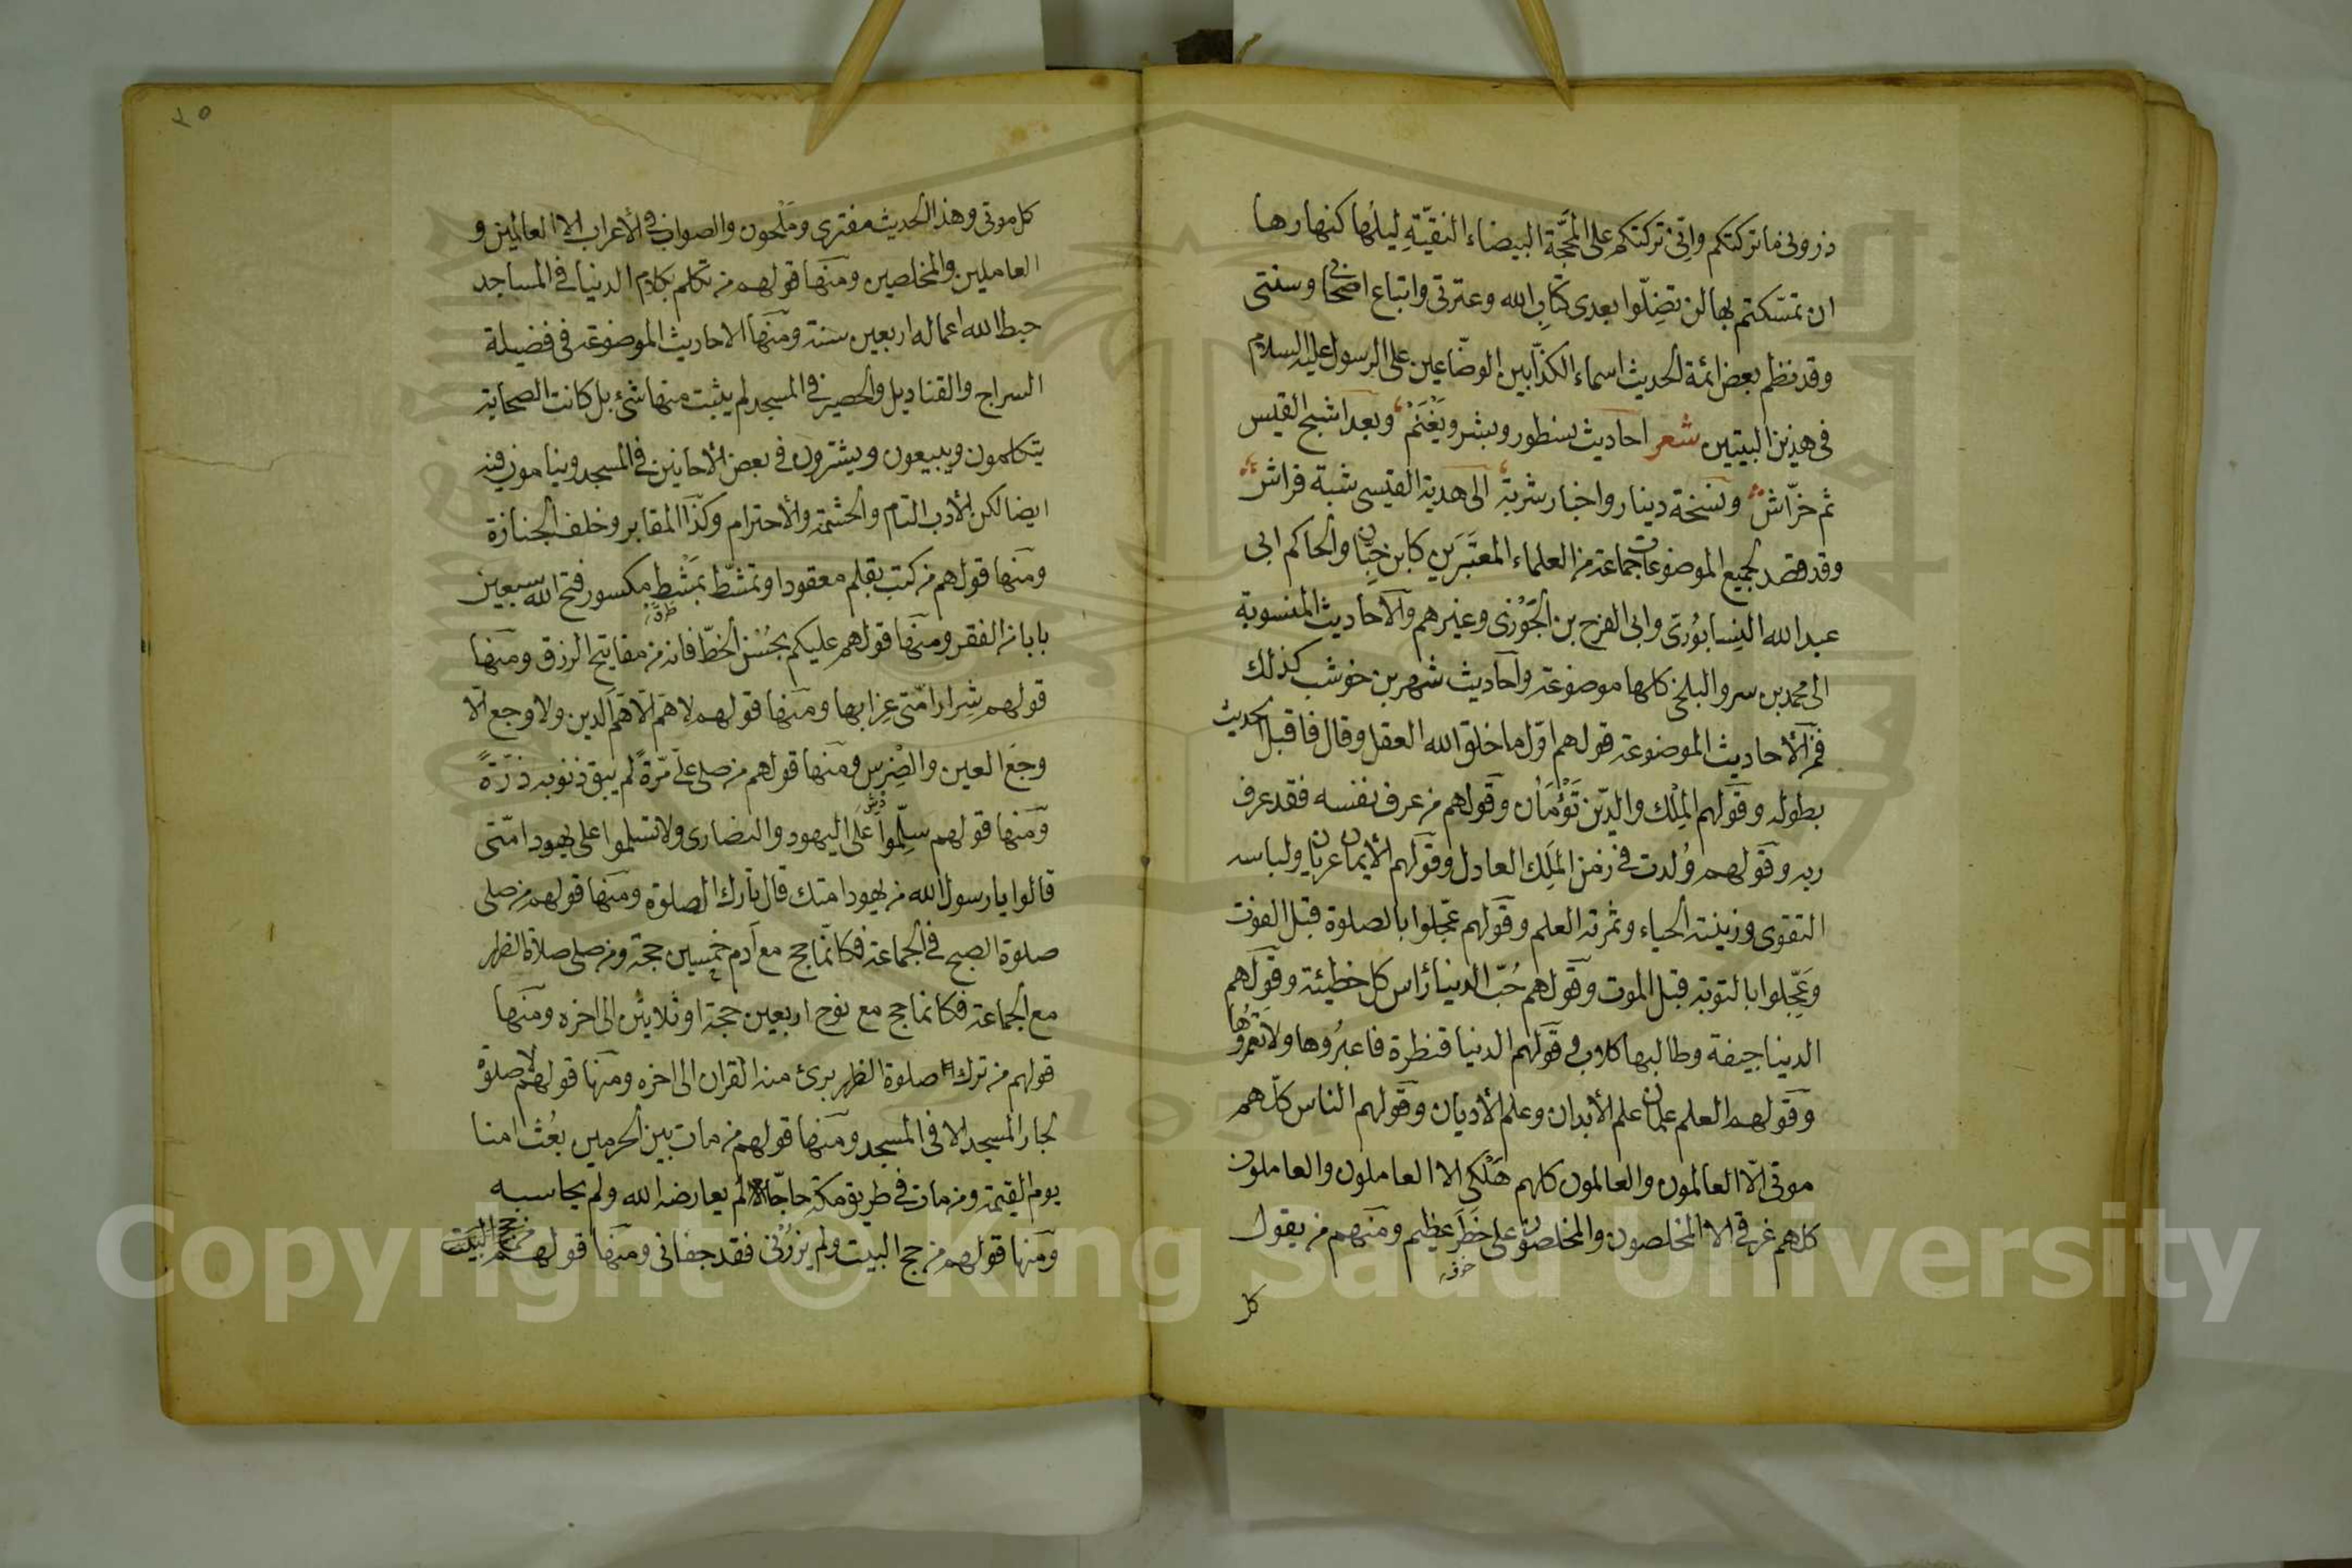 ذروني ما تركتكم واني تركتكم على المحجّة البيضاء النقيّةِ ليلها كنهارها
ان تمسّكتم بها لن تضِلّوا بعدي كتابِ الله وعترتي واتباع اصحابي وسنتي
وقد نظم بعض ائمة الحديث اسماء الكذّابين الوضّاعين على الرسول عليه السلام
في هذين البيتين شعر احاديث نسطور وبشر ويَغْنَم وبعد اشبح القيس
ثم خرّاش ونسخة دينار واخبار شربة الى هدية القيسي شبة فراش
وقد قصد لجميع الموضوعات جماعة من العلماء المعتَبَرَين كابن حِبّان والحاكم ابي
عبد الله النيسابُورىّ وابى الفرج بن الجَوْزى وغيرهم والآحاديث المنسوبة
الى محمد بن سرو البلخى كلها موضوعة وآحاديث شهر بن خوشب كذلك
فمن الأحاديث الموضوعة قولهم اوّل ما خلق الله العقل وقال فاقبل الحديث
بطوله وقولهم المِلْك والدّين تَوْءَمَان وقولهم من عرف نفسه فقد عرف
ربه وقولهم وُلدت في زمن المَلِك العادل وقولهم الأيمان عريان ولباسه
التقوى وزينته الحياء وثمرته العلم وقولهم عجّلوا بالصلوة قبل الفوت
وَعَجِّلوا بالتوبة قبل الموت وقولهم حُبّ الدنيا رأس كل خطيئة وقولهم
الدنيا جيفة وطالبها كلاب وقولهم الدنيا قنطرة فاعبُروها ولا تعمرُوها
وقولهم العلم علمان علم الأبدان وعلم الأديان وقولهم الناس كلّهم
موتى الّا العالمون والعالمون كلهم هَلْكى الا العاملون والعاملون
كلهم غرقى الا المخلصون والمخلصون على خَطَرٍ عظيم ومنهم من يقول
كل
٢٥
كل موتى وهذا الحديث مفترى ومَلْحون والصواب في الأعراب الا العالمين و
العاملين والمخلصين ومنها قولهم من تكلم بكلام الدنيا في المساجد
حبط الله اعماله اربعين سنة ومنها الاحاديث الموضوعة في فضيلة
السراج والقناديل والحصير في المسجد لم يثبت منها شئ بل كانت الصحابة
يتكلمون ويبيعون ويشترون في بعض الأحانين في المسجد وينامون فيه
ايضا لكن الأدب التام والحشمة والأحترام وكذا المقابر وخلف الجنازة
ومنها قولهم من كتب بقلم معقود او تمشّط بمَشْط مكسور فتح الله سبعين
بابا من الفقر ومنها قولهم عليكم بحُسْن الخطّ فانه من مفاتيح الرزق ومنها
قولهم شِرار امّتى عزابها ومنها قولهم لا همّ الّا هَمّ الدين ولا وجع الّا
وجَع العين والضِرس ومنها قولهم من صلى علىّ مَرّةً لم يبق ذنوبه ذرّةً
ومنها قولهم سلِّموا على اليهود والنصارى ولا تسلموا على يهود امّتى
قالوا يا رسول الله من يهود امتك قال تارك الصلوة ومنها قولهم من صلى
صلوة الصبح في الجماعة فكانّما حج مع آدم خمسين حجة ومن صلى صلاة الظهر
مع الجماعة فكانما حج مع نوح اربعين حجة او ثلاثين الى اخره ومنها
قولهم من ترك صلوة الظهر برئ منه القران الى اخره ومنها قولهم لا صلوة
لجار المسجد الا في المسجد ومنها قولهم من مات بين الحرمين بعُث امنا
يوم القيمة ومن مات في طريق مكة حاجّا لم يعارضه الله ولم يحاسبه
ومنها قولهم من حج البيت ولم يزُرْنى فقد جفانى ومنها قولهم